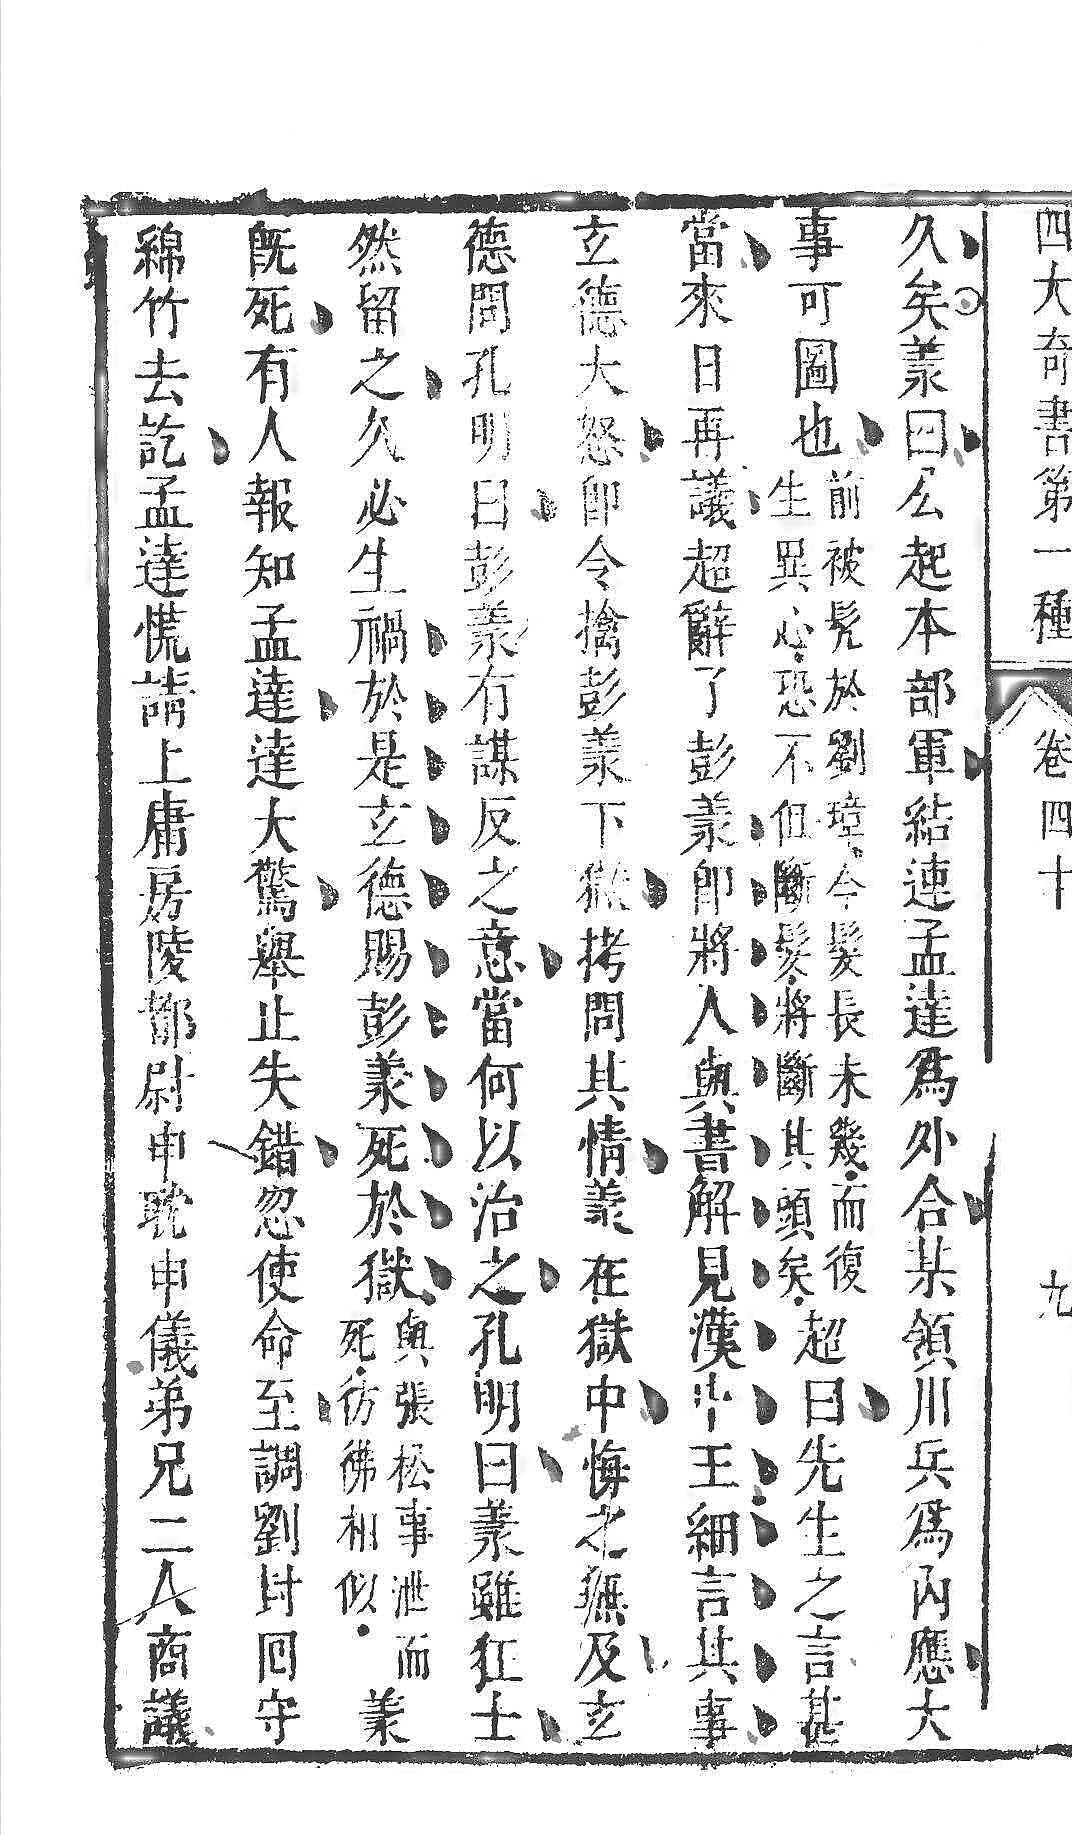 四大奇書第一種 卷四十 九
久矣羕曰公起本部軍結連孟達爲外合某領川兵爲內應大
事可圖也前被髠於劉璋今髮長未幾而復生異心恐不但斷髮將斷其頭矣超曰先生之言甚
當來日再議超辭了彭羕卽將人與書解見漢中王細言其事
玄德大怒卽令擒彭羕下獄拷問其情羕在獄中悔之無及玄
德問孔明曰彭羕有謀反之意當何以治之孔明曰羕雖狂士
然留之久必生禍於是玄德賜彭羕死於獄與張松事泄而死彷彿相似羕
旣死有人報知孟達達大驚舉止失錯忽使命至調劉封回守
綿竹去訖孟達慌請上庸房陵都尉申耽申儀弟兄二人商議